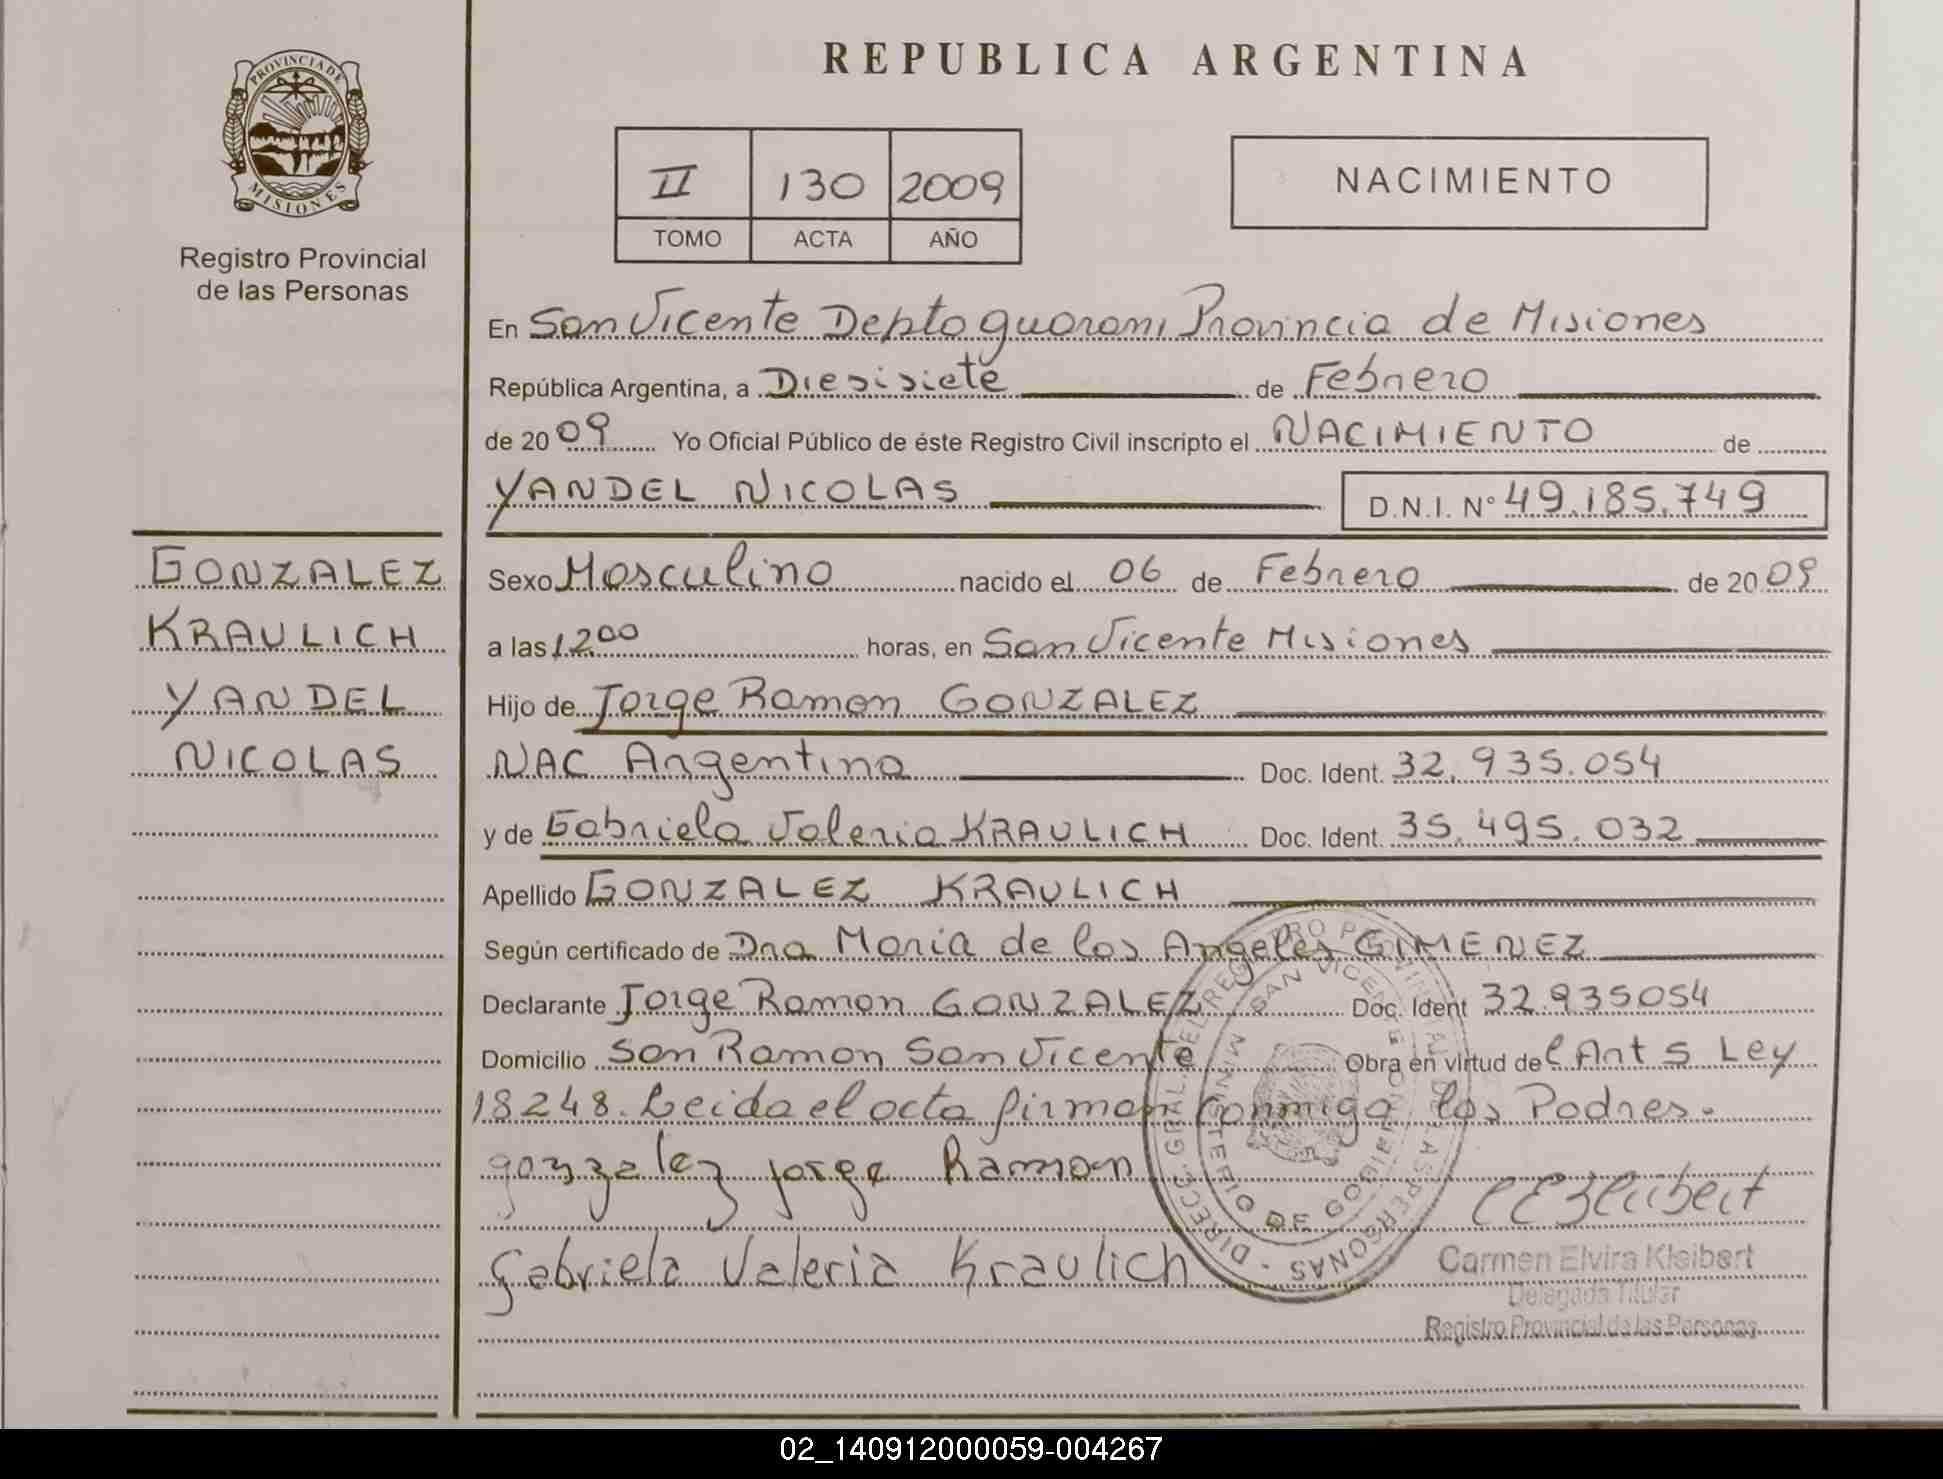 REPUBLICA ARGENTINA
PROVINCIA DE MISIONES
Registro Provincial
de las Personas
II 130 2009
TOMO ACTA AÑO
NACIMIENTO
En San Vicente Depto guarani Provincia de Misiones
República Argentina, a Diesisiete de Febrero
de 2009 Yo Oficial Público de éste Registro Civil inscripto el NACIMIENTO de
YANDEL NICOLAS D.N.I. N° 49.185.749
GONZALEZ
KRAULICH
YANDEL
NICOLAS
Sexo Masculino nacido el 06 de Febrero de 2009
a las 12 00 horas, en San Vicente Misiones
Hijo de Jorge Ramon GONZALEZ
NAC Argentina Doc. Ident. 32.935.054
y de Gabriela Valeria KRAULICH Doc. Ident. 35.495.032
Apellido GONZALEZ KRAULICH
Según certificado de Dra Maria de los Angeles GIMENEZ
Declarante Jorge Ramon GONZALEZ Doc. Ident 32.935054
Domicilio San Ramon San Vicente Obra en virtud del Art 5 Ley
18248. Leida el acta firman conmigo los Padres.
gonzalez jorge Ramon
Gabriela Valeria Kraulich
DIREC. GRAL. DEL REGISTRO PROVINCIAL DE LAS PERSONAS
MINISTERIO DE GOBIERNO
SAN VICENTE
Carmen Elvira Kleibert
Delegada Titular
Registro Provincial de las Personas
02_140912000059-004267